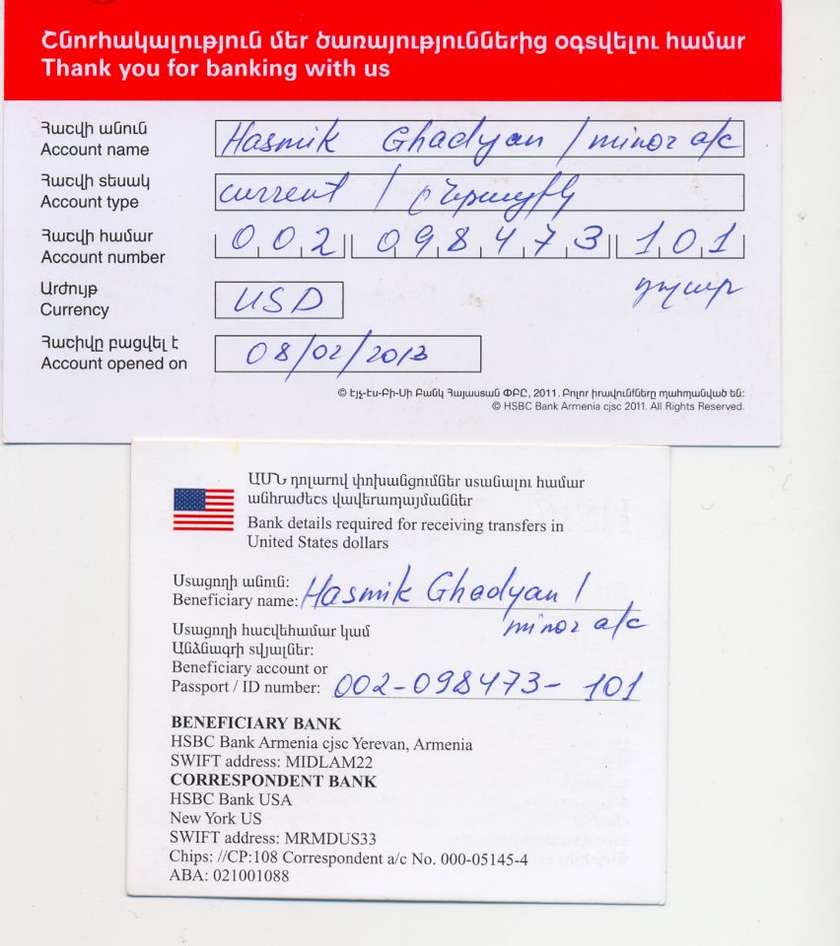 Շնորհակալություն մեր ծառայություններից օգտվելու համար
Thank you for banking with us
Հաշվի անուն
Account name
Hasmik Ghadyan / minor a/c
Հաշվի տեսակ
Account type
current / ընթացիկ
Հաշվի համար
Account number
002 098473 101
Արժույթ
Currency
USD
դոլար
Հաշիվը բացվել է
Account opened on
08/02/2013
© Էյչ-Էս-Բի-Սի Բանկ Հայաստան ՓԲԸ, 2011. Բոլոր իրավունքները պահպանված են:
© HSBC Bank Armenia cjsc 2011. All Rights Reserved.
ԱՄՆ դոլարով փոխանցումներ ստանալու համար
անհրաժեշտ վավերապայմաններ
Bank details required for receiving transfers in
United States dollars
Ստացողի անուն:
Beneficiary name: Hasmik Ghadyan /
minor a/c
Ստացողի հաշվեհամար կամ
Անձնագրի տվյալներ:
Beneficiary account or
Passport / ID number: 002-098473-101
BENEFICIARY BANK
HSBC Bank Armenia cjsc Yerevan, Armenia
SWIFT address: MIDLAM22
CORRESPONDENT BANK
HSBC Bank USA
New York US
SWIFT address: MRMDUS33
Chips: //CP:108 Correspondent a/c No. 000-05145-4
ABA: 021001088